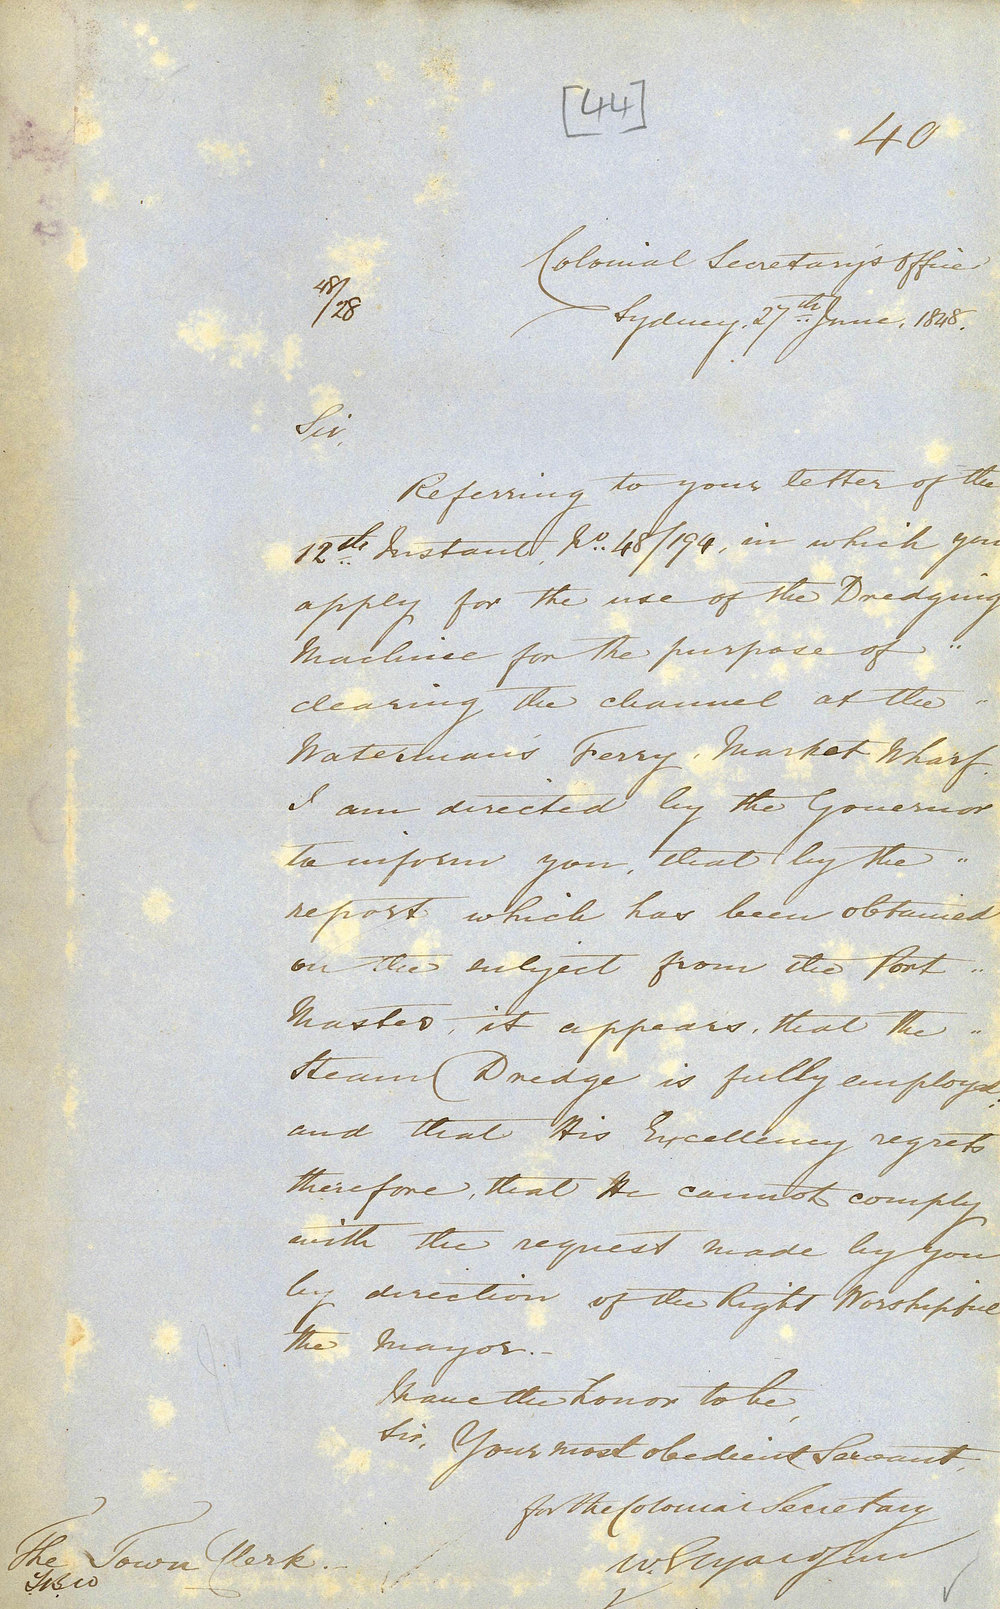 [44]
40
Colonial Secretary's Office
48/28
Sydney, 27th June, 1848.
Sir,
Referring to your letter of the
12th Instant, No. 48/194, in which you
apply for the use of the Dredging
Machine for the purpose of "
clearing the channel at the "
Waterman's Ferry, Market Wharf.
I am directed by the Governor
to inform you, that by the "
report which has been obtained
on the subject from the Port "
Master, it appears, that the "
Steam Dredge is fully employed,
and that His Excellency regrets
therefore, that He cannot comply
with the request made by you
by direction of the Right Worshipful
the Mayor.
I have the honor to be,
Sir, Your most obedient Servant,
for the Colonial Secretary
W.
The Town Clerk.